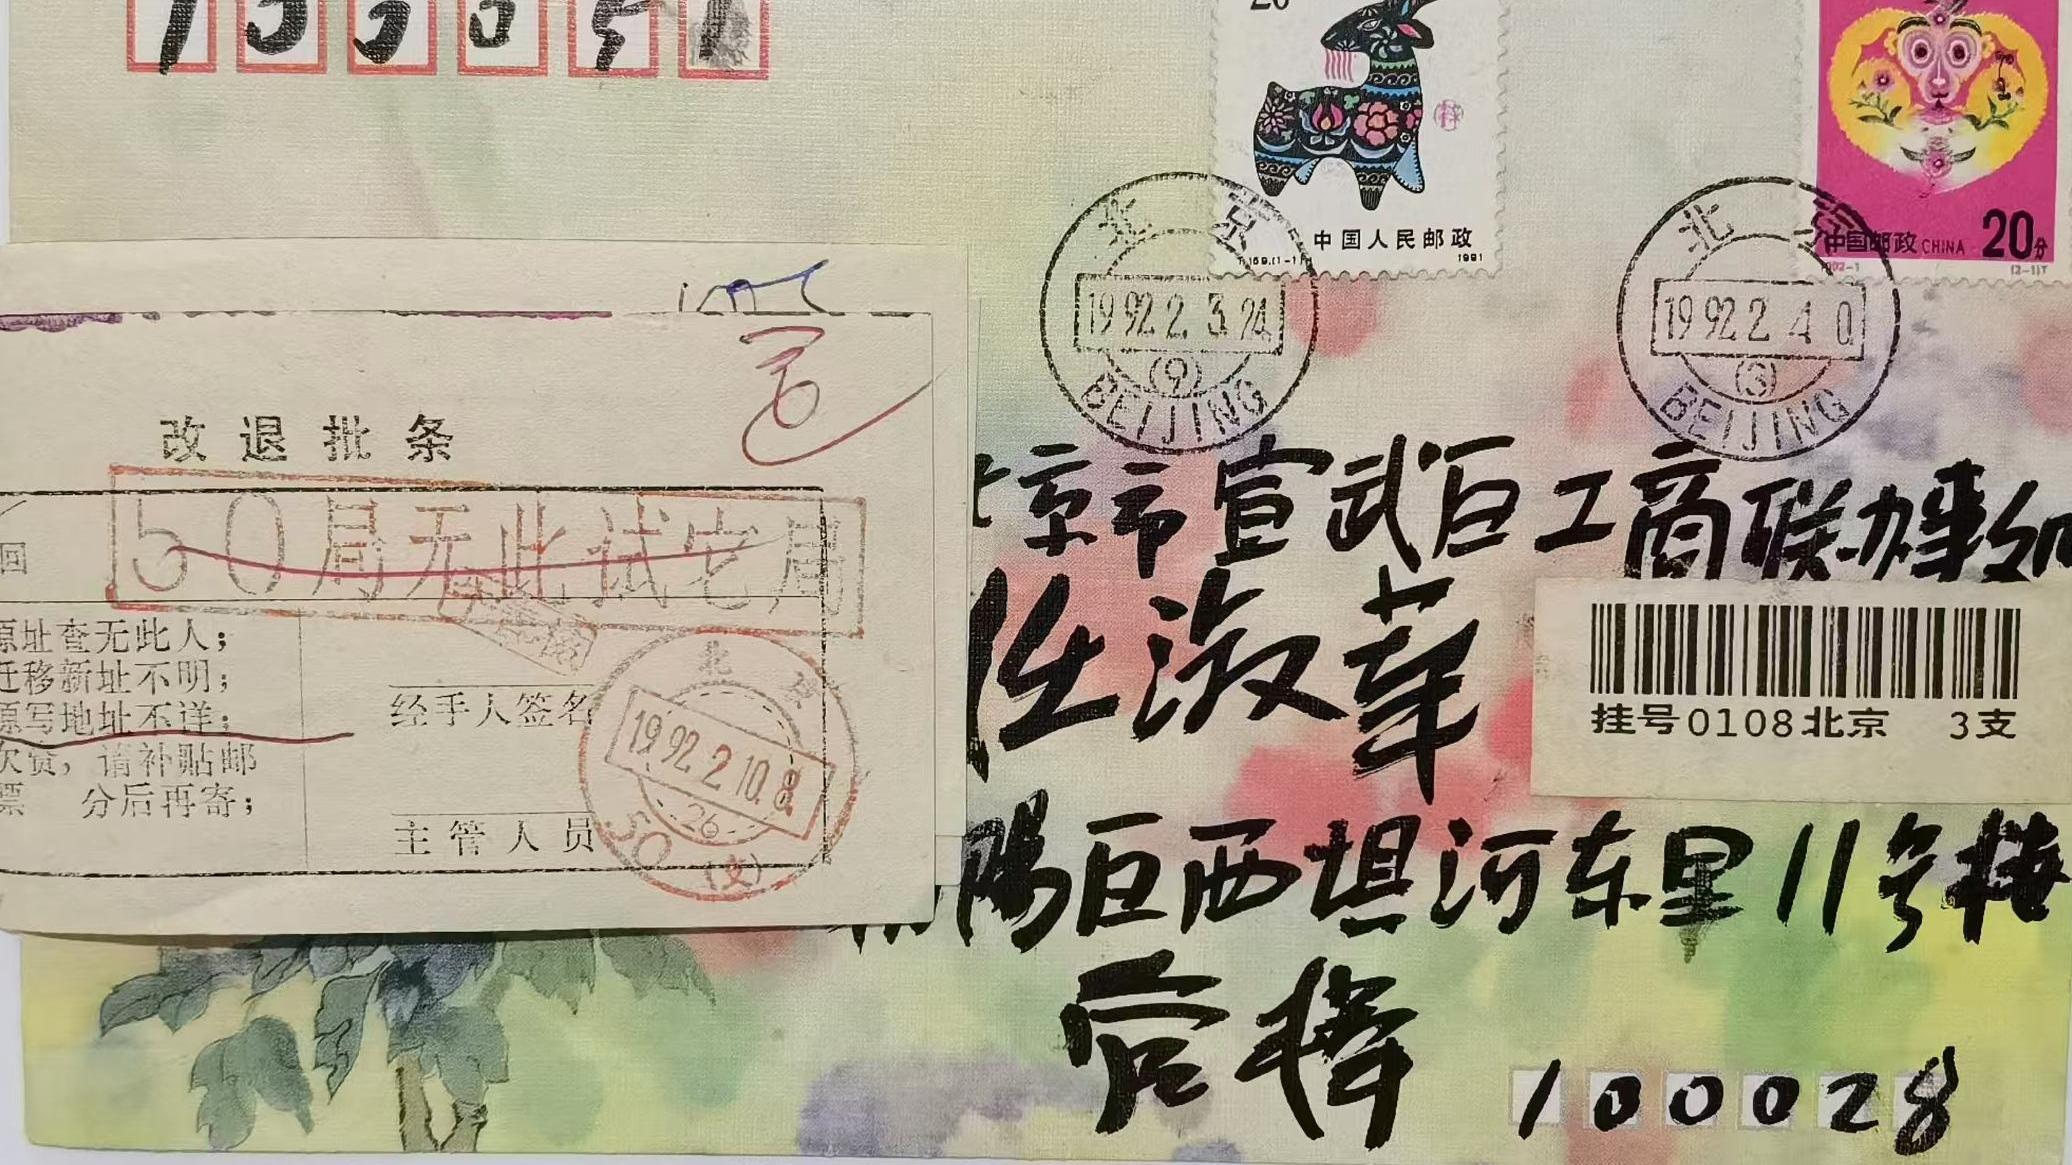 20
中国人民邮政
T.159.(1-1)
1991
中国邮政 CHINA 20分
1992-1 (2-1)T
北京
1992.2.3.24
(9)
BEIJING
北京
1992.2.4.0
(3)
BEIJING
改退批条
50局无此试宅局
回
原址查无此人;
迁移新址不明;
原写地址不详;
欠资,请补贴邮
票 分后再寄;
经手人签名
主管人员
北京
1992.2.10.8
26
50(支)
京市宣武区工商联办事
任淑华
挂号0108北京 3支
阳区西坝河东里11号楼
100028